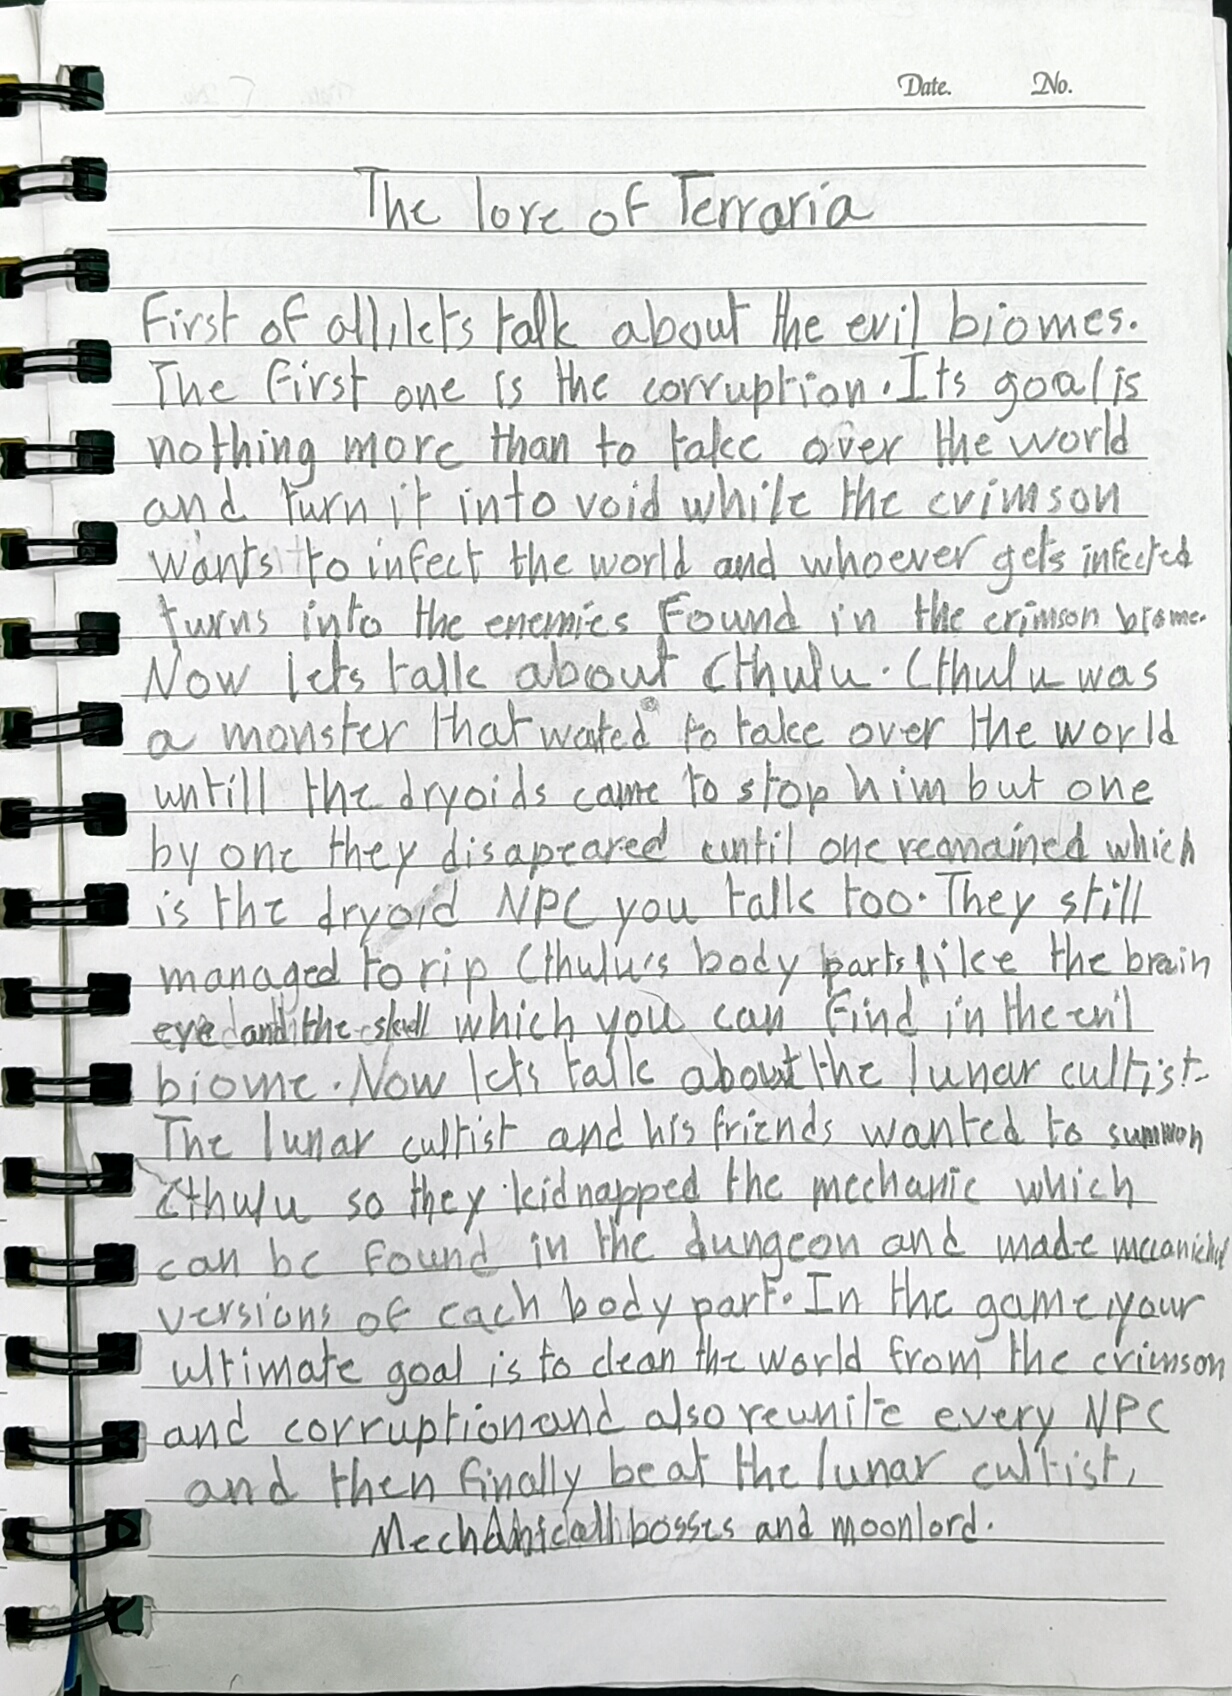 Date. No.
The lore of Terraria
First of all, lets talk about the evil biomes.
The first one is the corruption. Its goal is
nothing more than to take over the world
and turn it into void while the crimson
wants to infect the world and whoever gets infected
turns into the enemies Found in the crimson biome.
Now lets talk about Cthulu. Cthulu was
a monster that wated to take over the world
untill the dryoids came to stop him but one
by one they disapeared until one reamained which
is the dryoid NPC you talk too. They still
managed to rip Cthulu's body parts, like the brain
eye and the skull which you can Find in the evil
biome. Now lets talk about the lunar cultist.
The lunar cultist and his friends wanted to summon
Cthulu so they kidnapped the mechanic which
can be Found in the dungeon and made
versions of each body part. In the game, your
ultimate goal is to clean the world from the crimson
and corruption and also reunite every NPC
and then finally beat the lunar cultist,
Mechanicall bosses and moonlord.